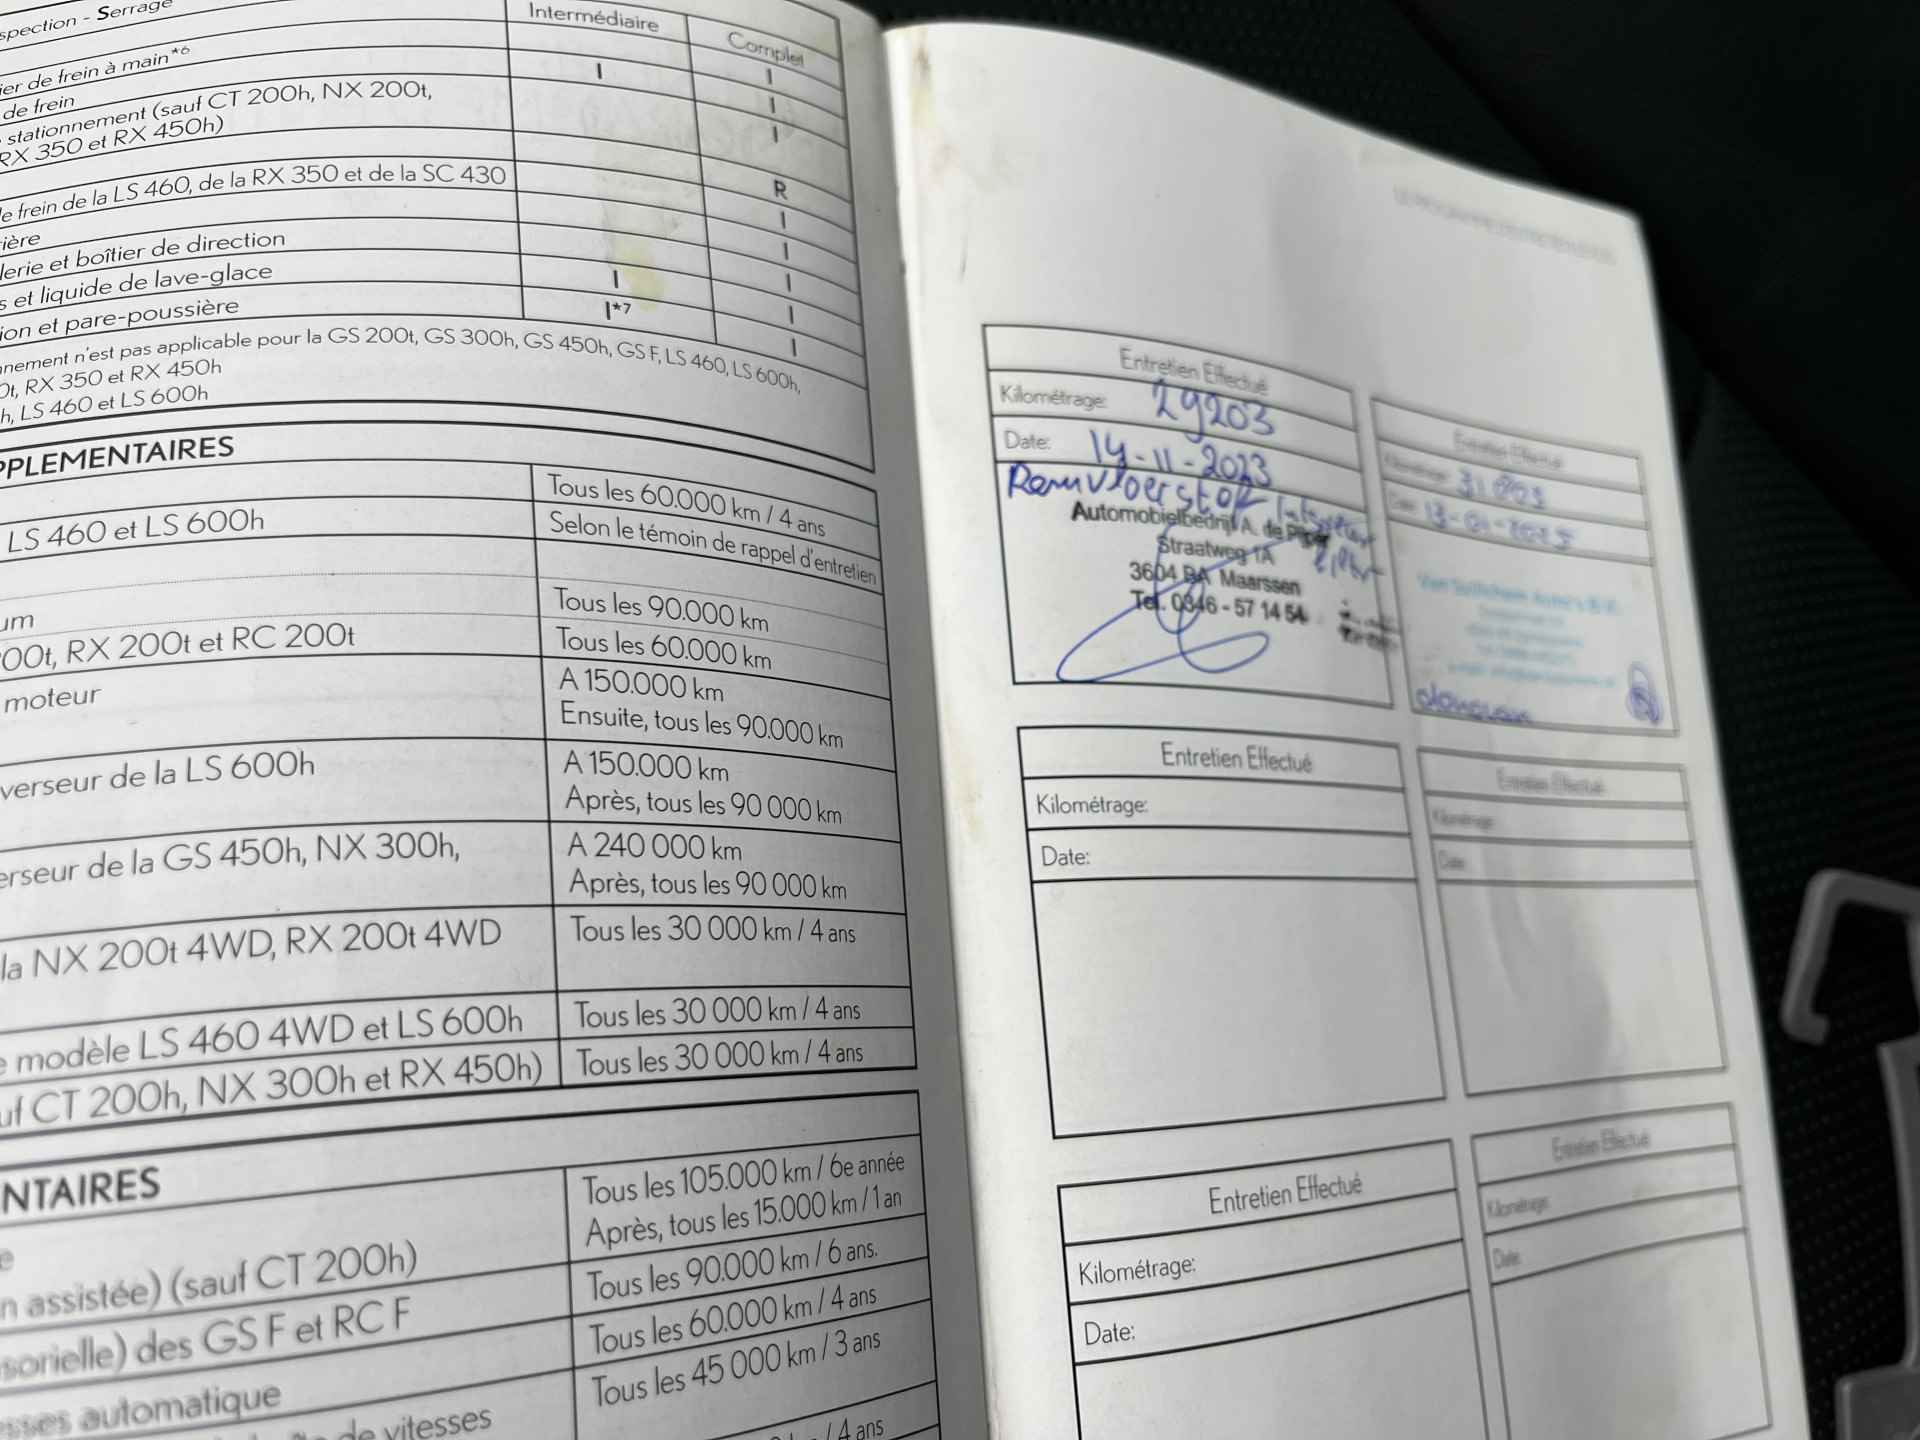 spection - Serrage
Intermédiaire
Complet
ier de frein à main*6
I
de frein
I
I
stationnement (sauf CT 200h, NX 200t,
RX 350 et RX 450h)
I
e frein de la LS 460, de la RX 350 et de la SC 430
R
ière
I
lerie et boîtier de direction
I
s et liquide de lave-glace
I
I
ion et pare-poussière
I*7
I
I
nnement n'est pas applicable pour la GS 200t, GS 300h, GS 450h, GS F, LS 460, LS 600h,
0t, RX 350 et RX 450h
h, LS 460 et LS 600h
PPLEMENTAIRES
Tous les 60.000 km / 4 ans
LS 460 et LS 600h
Selon le témoin de rappel d'entretien
um
Tous les 90.000 km
00t, RX 200t et RC 200t
Tous les 60.000 km
moteur
A 150.000 km
Ensuite, tous les 90.000 km
verseur de la LS 600h
A 150.000 km
Après, tous les 90 000 km
erseur de la GS 450h, NX 300h,
A 240 000 km
Après, tous les 90 000 km
la NX 200t 4WD, RX 200t 4WD
Tous les 30 000 km / 4 ans
e modèle LS 460 4WD et LS 600h
Tous les 30 000 km / 4 ans
uf CT 200h, NX 300h et RX 450h)
Tous les 30 000 km / 4 ans
NTAIRES
Tous les 105.000 km / 6e année
Après, tous les 15.000 km / 1 an
e
n assistée) (sauf CT 200h)
Tous les 90.000 km / 6 ans.
sorielle) des GS F et RC F
Tous les 60.000 km / 4 ans
esses automatique
Tous les 45 000 km / 3 ans
de vitesses
/ 4 ans
Entretien Effectué
Kilométrage: 29203
Date: 14-11-2023
Remvloeistof
Automobielbedrijf A. de Pijper
Straatweg 1A
3604 BA Maarssen
Tel. 0346 - 57 14 54
Entretien Effectué
Kilométrage:
Date:
Entretien Effectué
Kilométrage:
Date:
Entretien Effectué
Kilométrage:
Date:
Entretien Effectué
Kilométrage:
Date:
Entretien Effectué
Kilométrage:
Date: